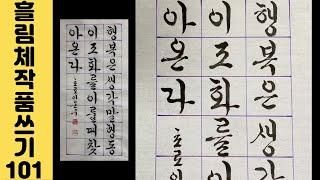 흘림체작품쓰기
101
행복은생각말행동
이조화를이룰때찾
아온다
행복은생
이조화를
아온다